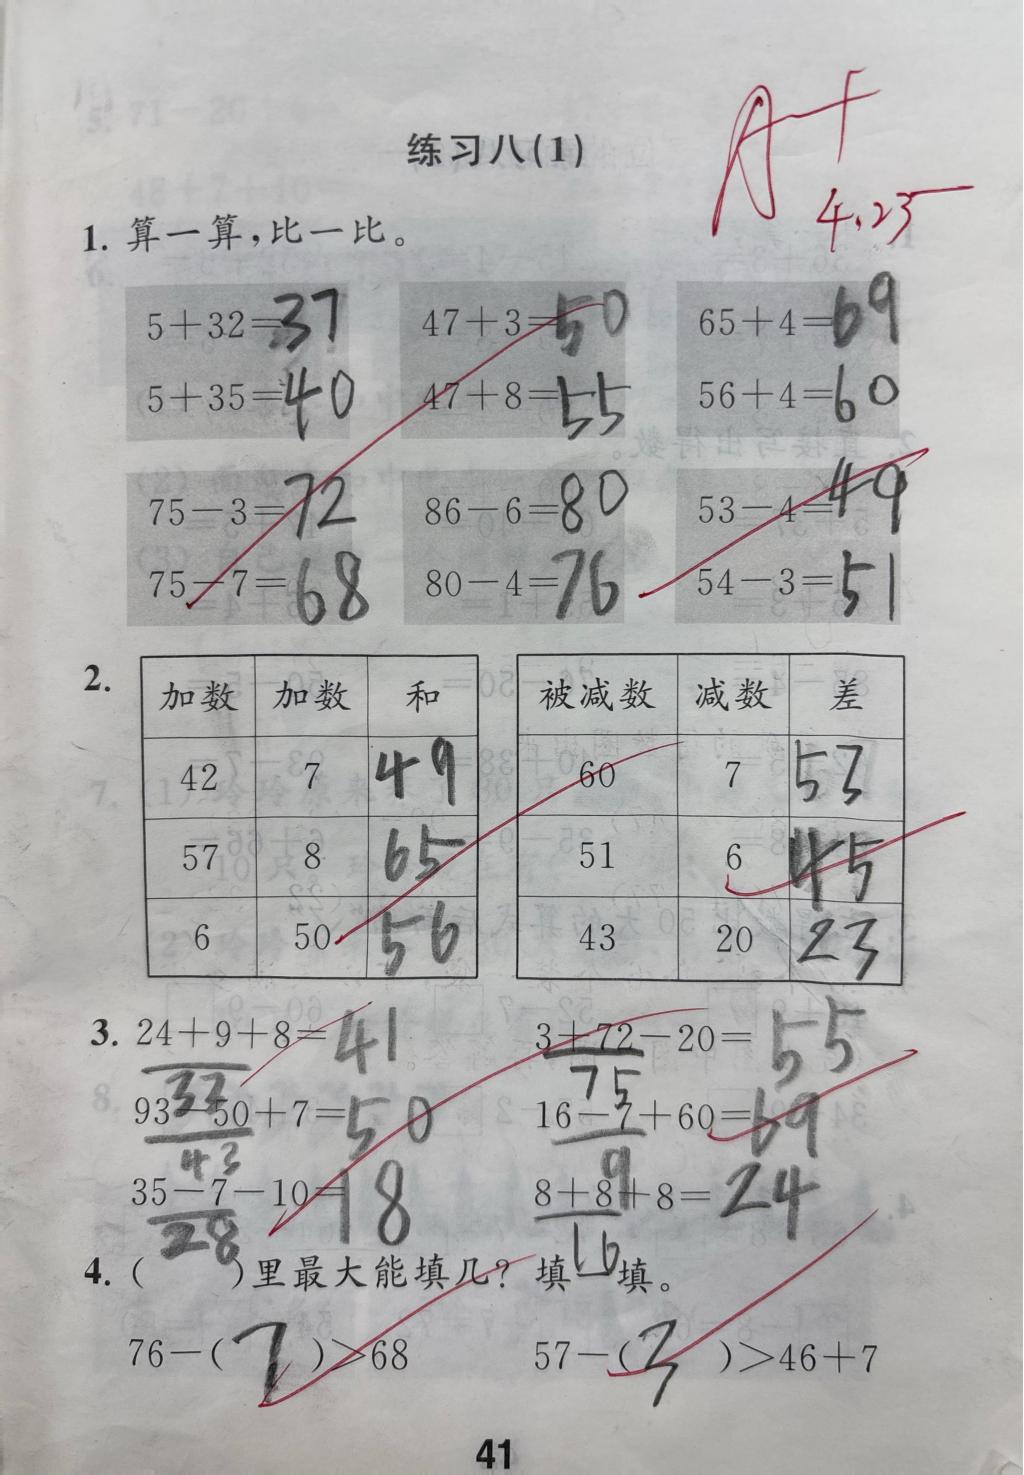 练习八(1)
A+
4.25
1. 算一算,比一比。
5+32=37 47+3=50 65+4=69
5+35=40 47+8=55 56+4=60
75-3=72 86-6=80 53-4=49
75-7=68 80-4=76 54-3=51
2.
加数 加数 和 被减数 减数 差
42 7 49 60 7 53
57 8 65 51 6 45
6 50 56 43 20 23
3. 24+9+8=41 3+72-20=55
33 75
93-50+7=50 16-7+60=69
43 9
35-7-10=18 8+8+8=24
28 16
4. ( )里最大能填几?填一填。
76-(7)>68 57-(3)>46+7
41